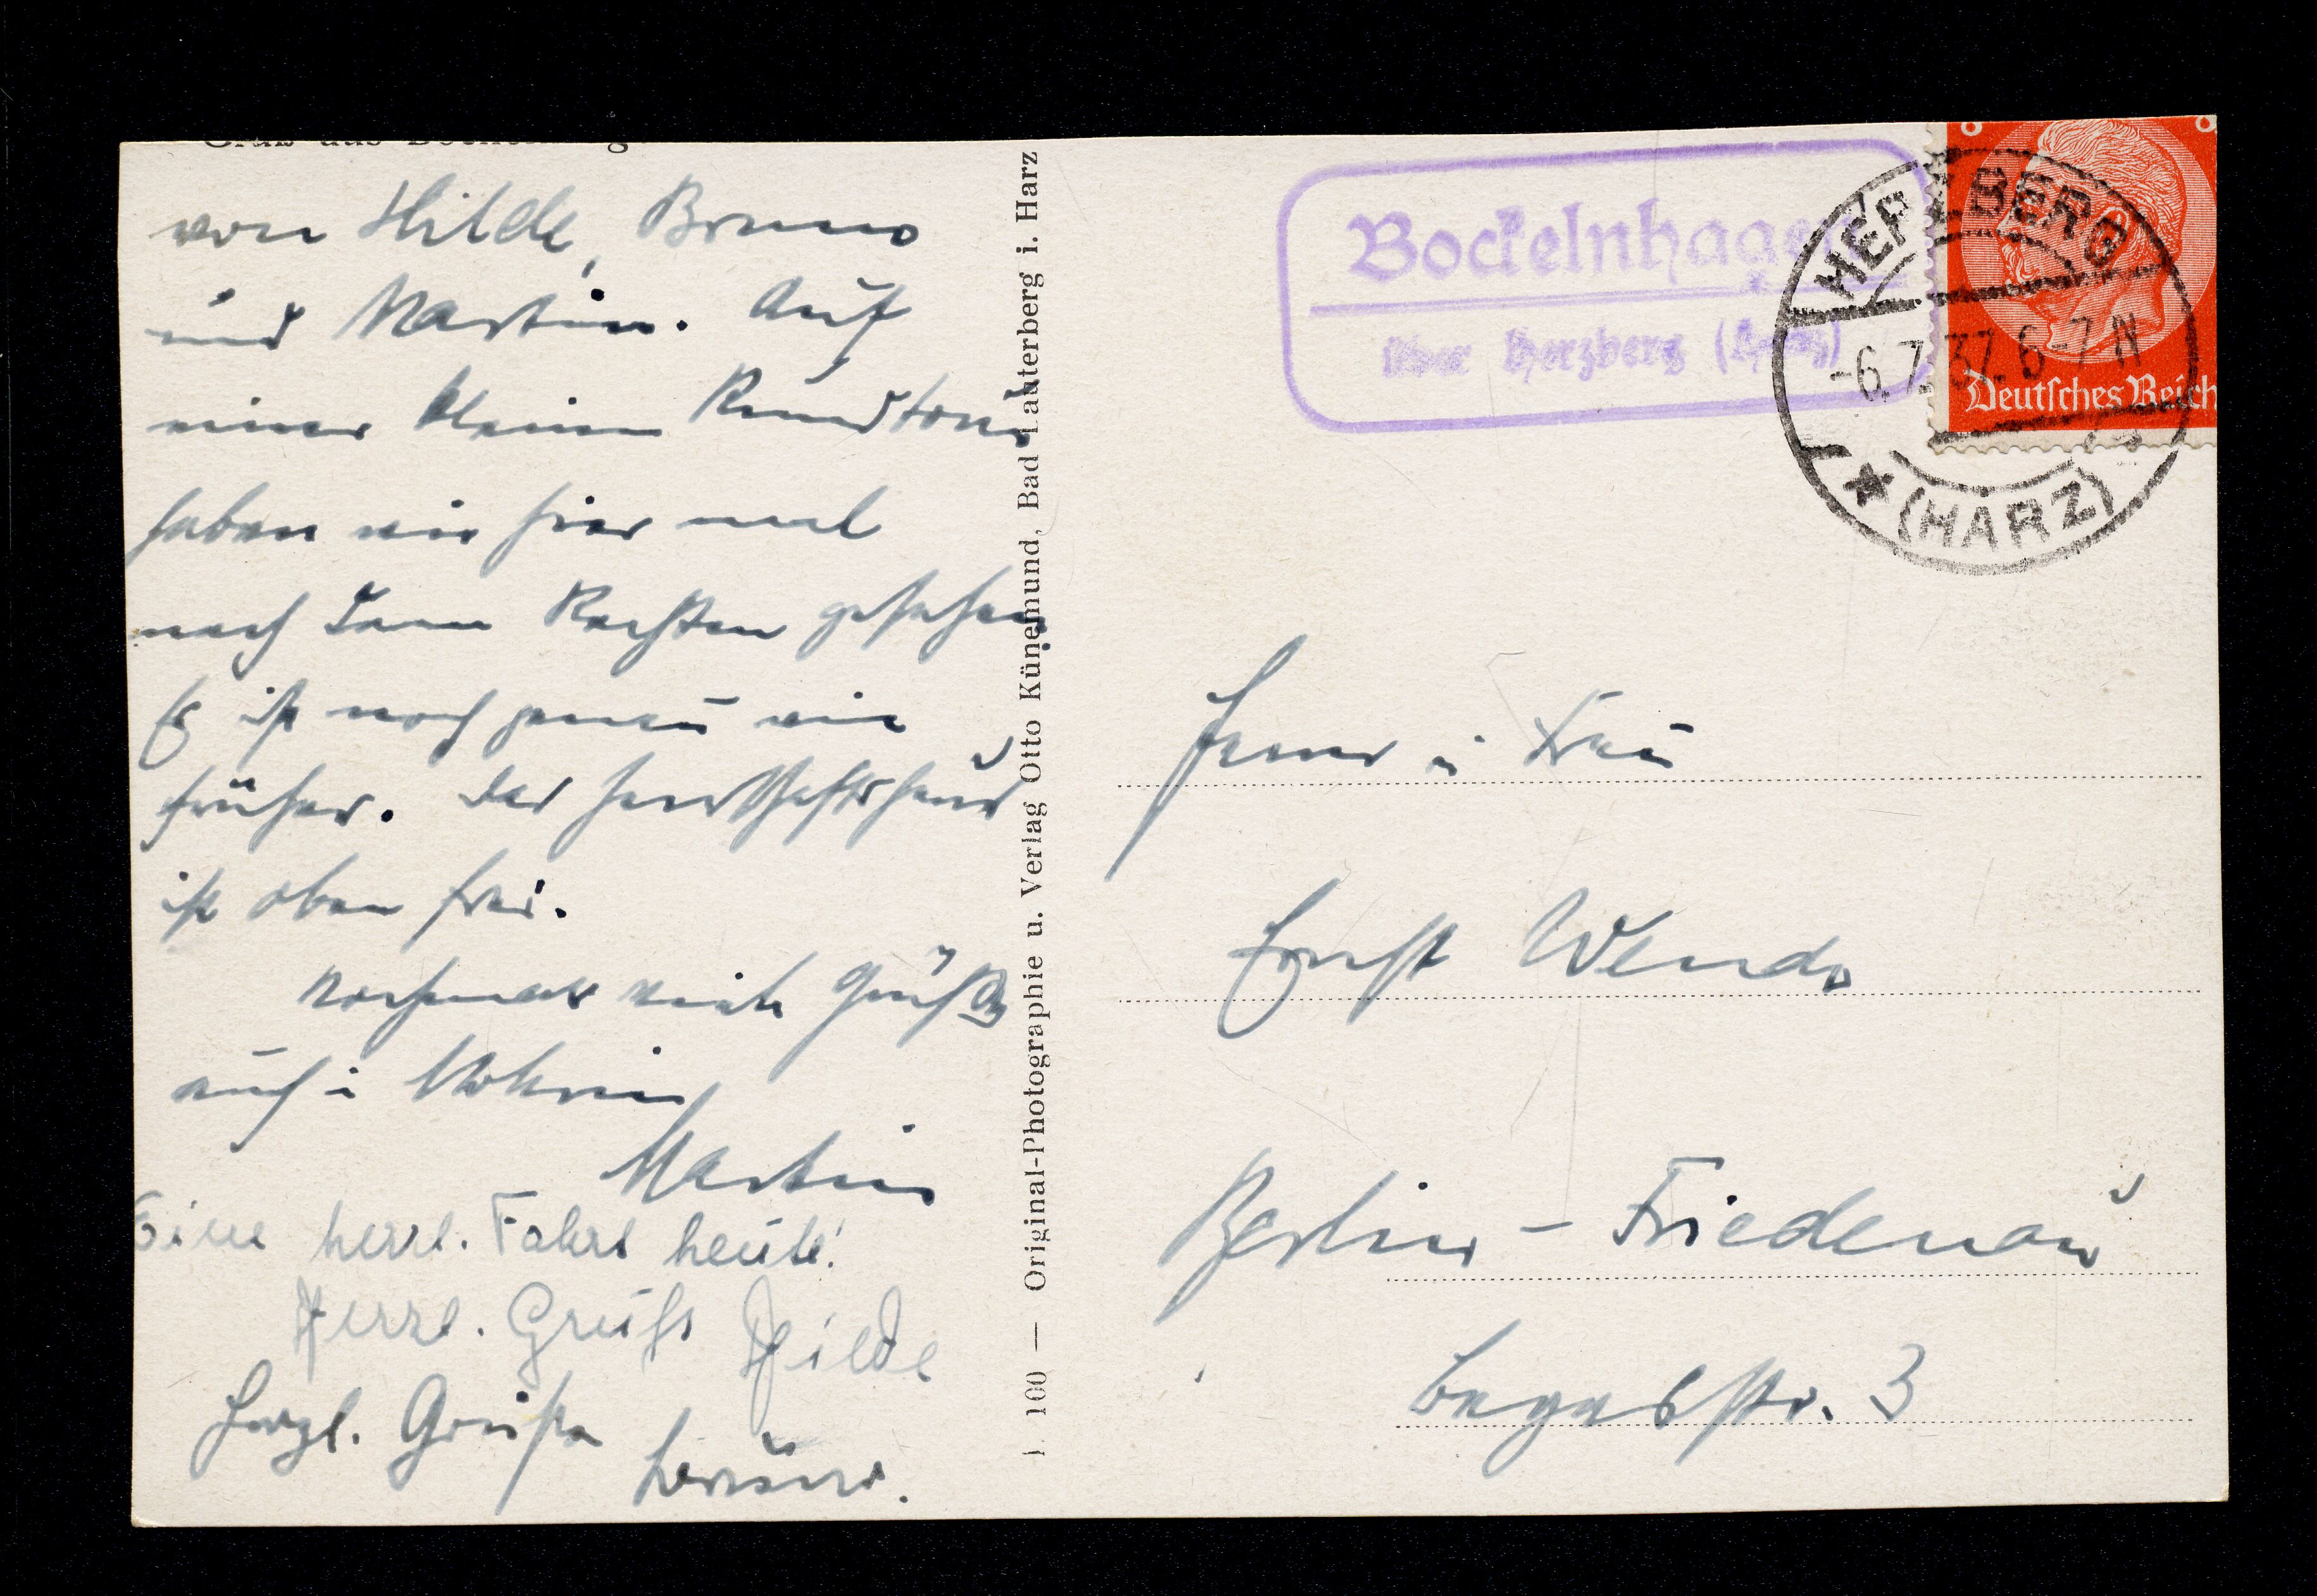 Gruß aus Bockelnhagen
von Hilde, Bruno
und Martin. Auf
einer kleinen Rundtour
haben wir hier mal
nach dem Rechten gesehen
Es ist noch genau wie
früher. Der Herrschaftshaus
ist oben frei.
Nochmals viele Grüße
auch i
Martin
Eine herrl. Fahrt heute!
Herzl. Grüße Hilde
Herzl. Grüße Bruno.
1. 100 — Original-Photographie u. Verlag Otto Künemund, Bad Lauterberg i. Harz
Bockelnhagen
über Herzberg (Harz)
HERZBERG
-6.7.37.6-7 N
* (HARZ)
8 8
Deutsches Reich
Herrn u Frau
Ernst Wende
Berlin - Friedenau
Begasstr. 3